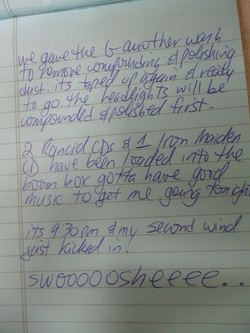 we gave the G another wash
to remove compounding & polishing
dust. its taped up again & ready
to go. the headlights will be
compounded & polished first.
2 Rancid CDs & 1 Iron Maiden
CD have been loaded into the
boom box gotta have good
music to get me going tonight
its 9:30 pm & my second wind
just kicked in!
swooooosheeee..